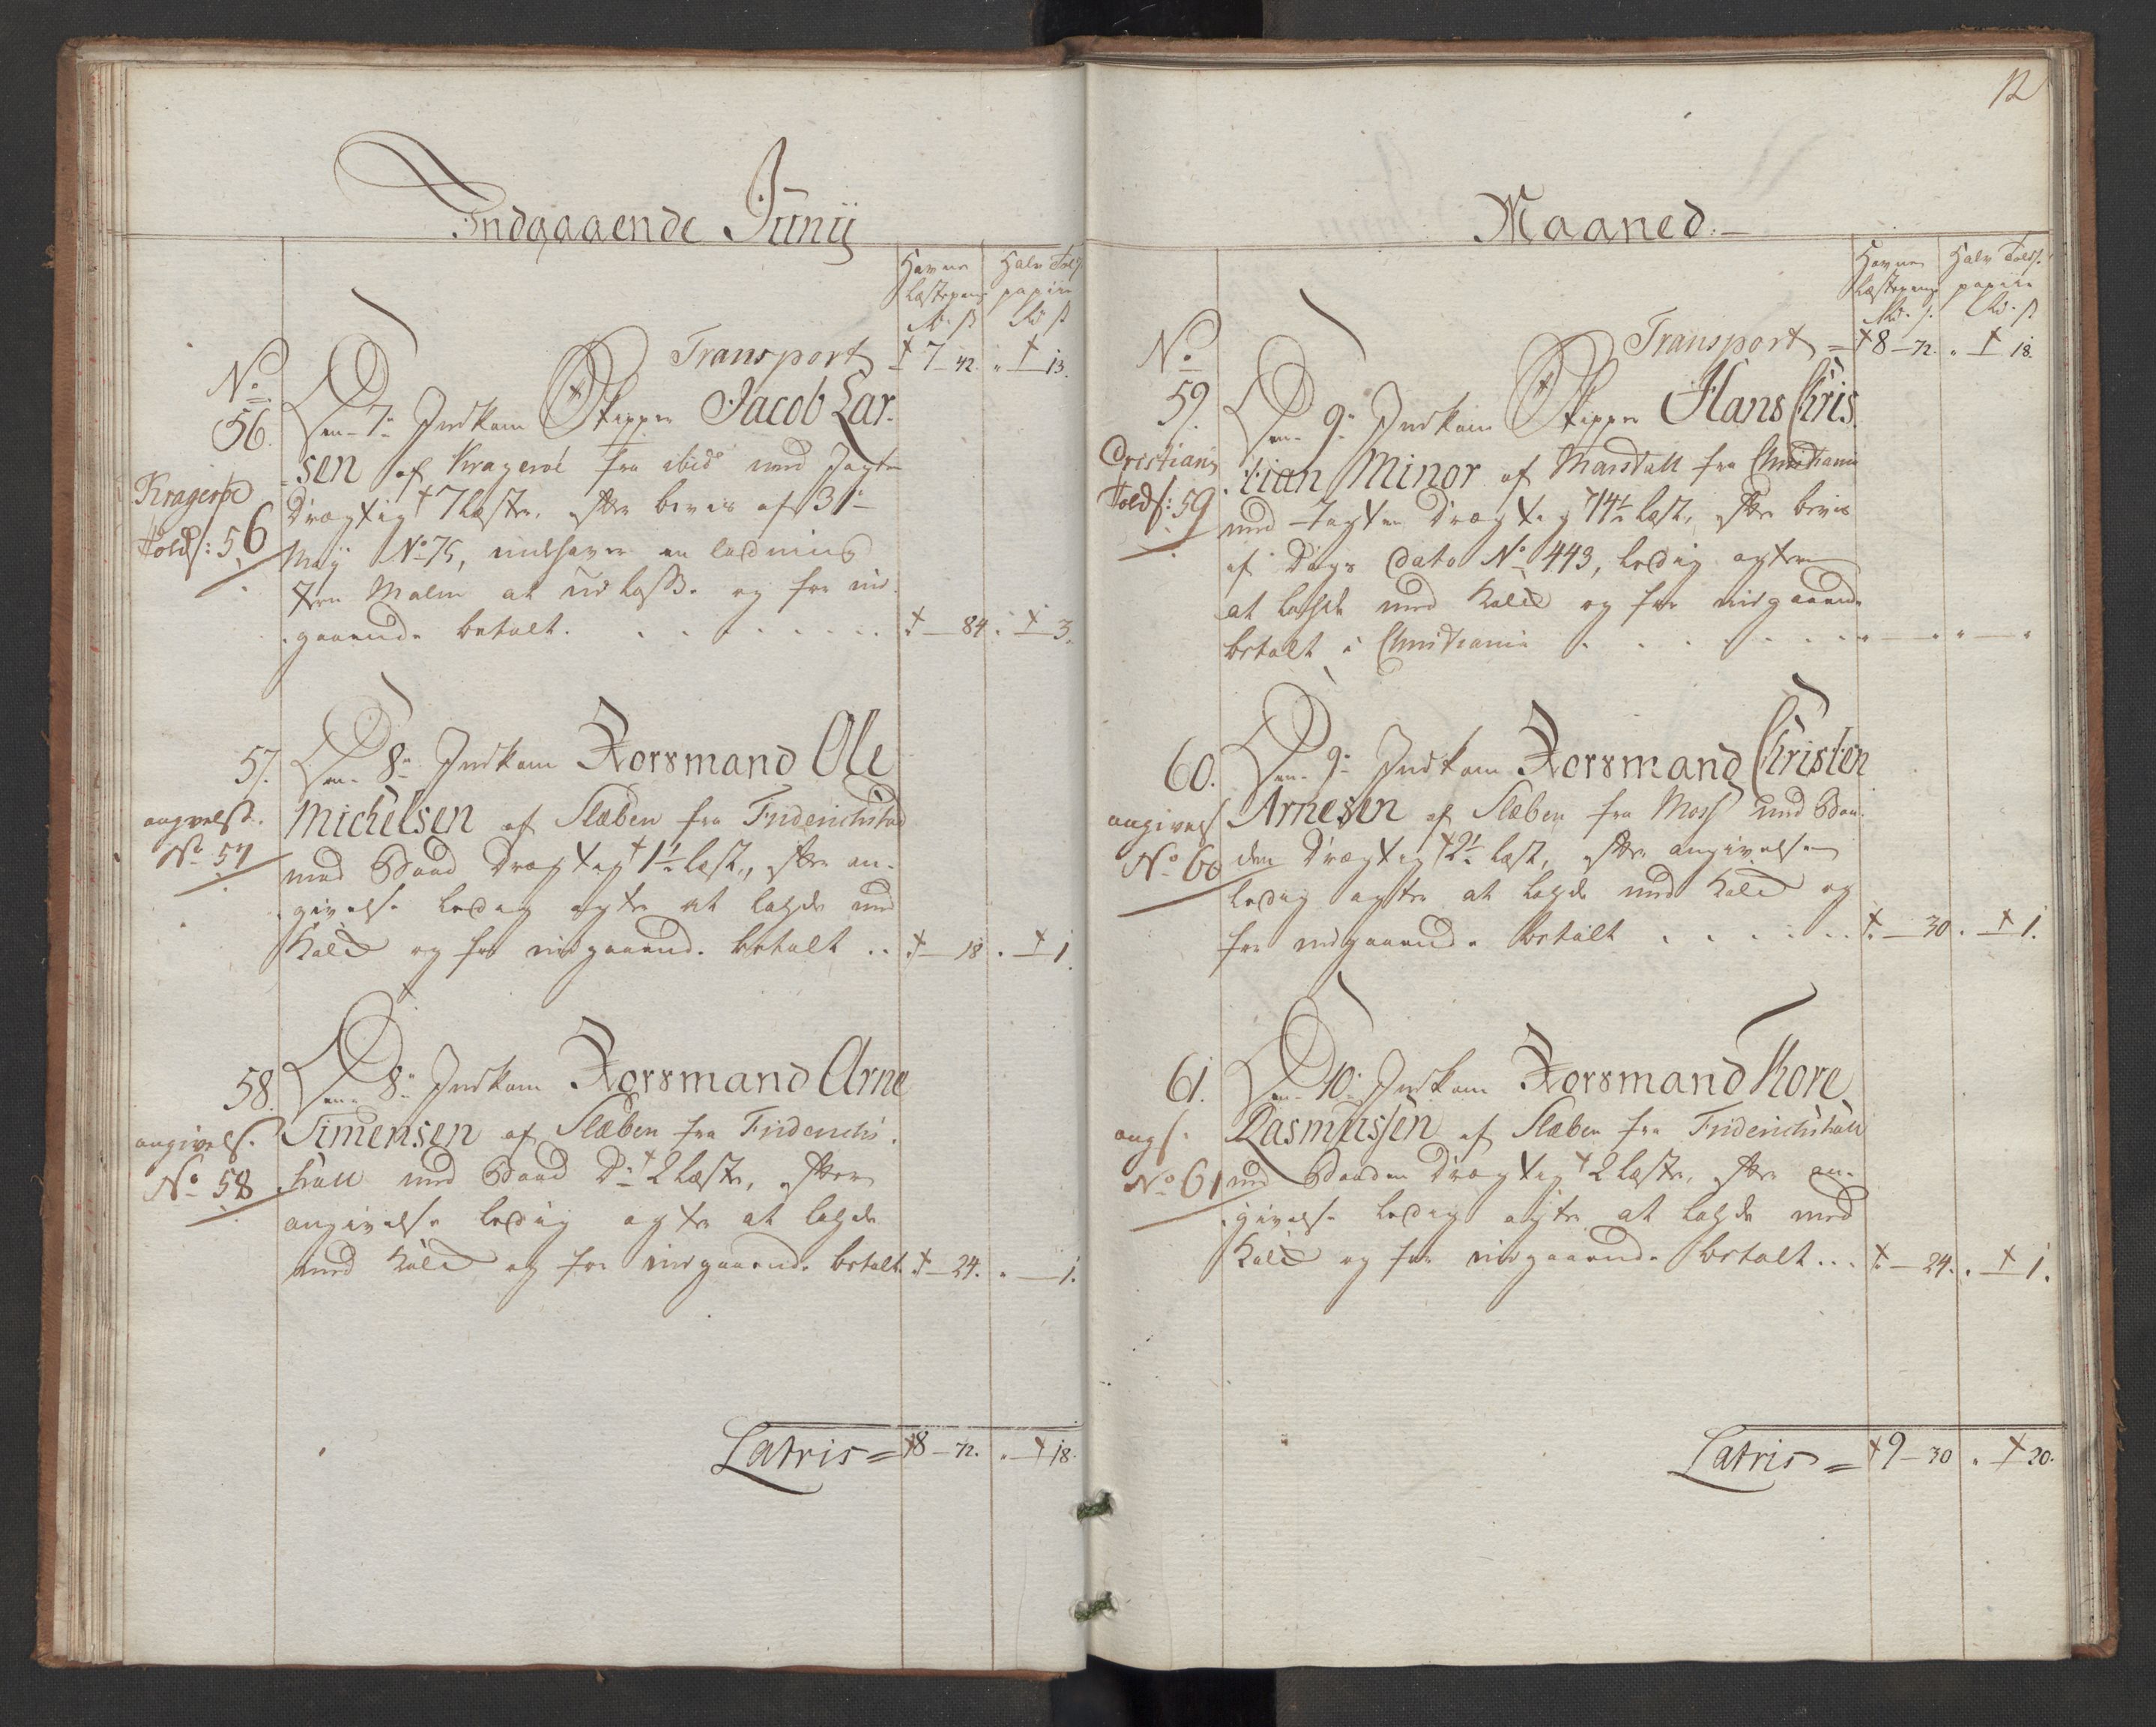 Indgaaende Junij
Havne
Læstepenge
Halv Told
papiir
Rd. ß
Rd ß
Transport = 7 - 42. " - 13.
No
56.
Kragerøe
Told s: 56
Den 7de Indkom Skipper Jacob Lar-
sen af Kragerøe fra ibid: med Jagten
drægtig 7 læster, efter beviis af 31te
Maij No 75, indhaver en ladning
Jern Malm at udlosse og for ind-
gaaende betalt . . . . . . . . - 84. " - 3.
57.
angivelse
No 57
Den 8de Indkom Forsmand Ole
Michelsen af Slæben fra Friderichstad
med Baad drægtig 1½ læst, efter an-
givelse ledig agter at lasste med
Kalk og for indgaaende betalt . . - 18. " - 1.
58.
angivelse
No 58
Den 8de Indkom Forsmand Arne
Simensen af Slæben fra Friderichs-
hall med Baad Do 2 læster, efter
angivelse ledig agter at lasste
med Kalk og for indgaaende betalt - 24. " - 1.
Latris = 8 - 72. " - 18.
12
Maaned.
Havne
Læstepenge
Halv Told
papiir
Rd. ß
Rd. ß
Transport = 8 - 72. " - 18.
No
59.
Cristiania
Told s: 59
Den 9de Indkom Skipper Hans Chris-
tian Minor af Marstall fra Christiania
med Jagten drægtig 14½ læst, efter beviis
af Dags Dato No 443, ledig agter
at lasste med Kalk og for indgaaende
betalt i Christiania . . . . . . . " - " " - "
60.
angivelse
No 60
Den 9de Indkom Forsmand Christen
Arnesen af Slæben fra Moss med Baa-
den drægtig 2½ læst, efter angivelse
ledig agter at lasste med Kalk og
for indgaaende betalt . . . . . . - 30. " - 1.
61.
angs.
No 61
Den 10de Indkom Forsmand Kore
Rasmussen af Slæben fra Friderichshall
med Baaden drægtig 2 læster, efter an-
givelse ledig agter at lasste med
Kalk og for indgaaende betalt . . . - 24. " - 1.
Latris = 9 - 30 " - 20.